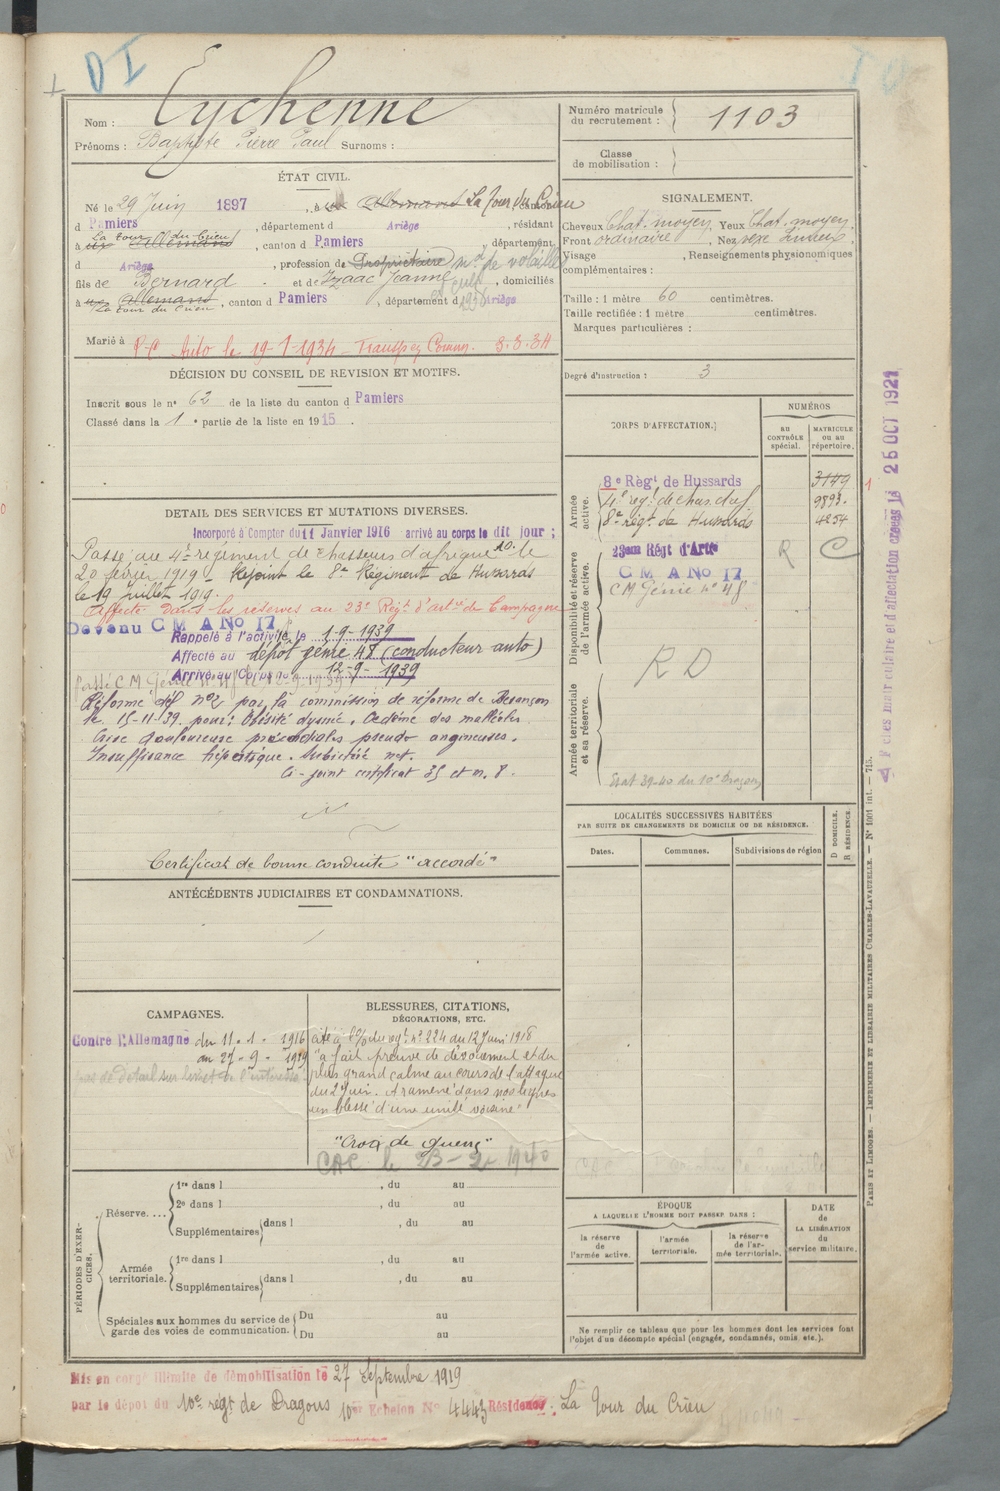 DI
Nom : Eychenne
Prénoms : Baptiste Pierre Paul Surnoms :
ÉTAT CIVIL.
Né le 29 Juin 1897, à Allemand La Tour du Crieu, canton
d Pamiers, département d Ariège, résidant
à La tour du Crieu Allemand, canton d Pamiers, département
d Ariège, profession de Propriétaire md de volailles
fils de Bernard et de Izaac Jeanne cult, domiciliés
à Allemand La tour du Crieu, canton d Pamiers, département d Ariège
Marié à
P.C. Auto le 19-1-1934 - Transp en Comm. 8.3.34
DÉCISION DU CONSEIL DE REVISION ET MOTIFS.
Inscrit sous le n° 62 de la liste du canton d Pamiers
Classé dans la 1 e partie de la liste en 1915.
DETAIL DES SERVICES ET MUTATIONS DIVERSES.
Incorporé à Compter du 11 Janvier 1916 arrivé au corps le dit jour ;
Passé au 4e régiment de chasseurs d'afrique le
20 février 1919 - Rejoint le 8e Régiment de Hussards
le 19 Juillet 1919.
Affecté dans les réserves au 23e Régt d'artie de Campagne
Devenu C M A No 17
Rappelé à l'activité le 1-9-1939
Affecté au dépôt génie 48 (conducteur auto)
Arrivé au Corps le 12-9-1939
Passé C M Génie n° 48 le 12-9-1939
Réformé déf n°2 par la commission de réforme de Besançon
le 15-11-39 pour : Obésité dysmé. Oedème des malléoles
Crise douloureuse précordiales pseudo angineuses.
Insuffisance hépatique. Subictère net.
Ci-joint certificat 35 et m. 8.
Certificat de bonne conduite "accordé"
ANTÉCÉDENTS JUDICIAIRES ET CONDAMNATIONS.
CAMPAGNES.
Contre l'Allemagne du 11 - 1 - 1916
au 27 - 9 - 1919
pas de détail sur livret de l'intéressé
BLESSURES, CITATIONS,
DÉCORATIONS, ETC.
Cité à l'O/ du régt n° 224 du 12 Juin 1918
"a fait preuve de dévouement et du
plus grand calme au cours de l'attaque
du 2 Juin. A ramené dans nos lignes
un blessé d'une unité voisine"
"Croix de guerre"
CAC le 23-2-1940
PÉRIODES D'EXERCICES.
Réserve....
1re dans l , du au
2e dans l , du au
Supplémentaires dans l , du au
Armée territoriale.
1re dans l , du au
Supplémentaires dans l , du au
Spéciales aux hommes du service de garde des voies de communication.
Du au
Du au
Mis en congé illimité de démobilisation le 27 Septembre 1919
par le dépôt du 10e régt de Dragons 10e Echelon No 4443 Résidence : La Tour du Crieu
Numéro matricule du recrutement : 1103
Classe de mobilisation :
SIGNALEMENT.
Cheveux Chat. moyen, Yeux Chat. moyen
Front ordinaire, Nez
Visage , Renseignements physionomiques
complémentaires :
Taille : 1 mètre 60 centimètres.
Taille rectifiée : 1 mètre centimètres.
Marques particulières :
Degré d'instruction : 3
CORPS D'AFFECTATION.
NUMÉROS
AU CONTRÔLE spécial.
MATRICULE ou au répertoire.
Armée active.
8e Régt de Hussards 3149
4e régt de chas. d'af 9893.
8e régt de Hussards 4254
Disponibilité et réserve de l'armée active.
23eme Régt d'Artie R C
C M A No 17
C M Génie n° 48
R D
Armée territoriale et sa réserve.
Etat 39-40 du 10e Dragons
LOCALITÉS SUCCESSIVES HABITÉES
PAR SUITE DE CHANGEMENTS DE DOMICILE OU DE RÉSIDENCE.
Dates. Communes. Subdivisions de région
D DOMICILE. R RÉSIDENCE.
ÉPOQUE
A LAQUELLE L'HOMME DOIT PASSER DANS :
la réserve de l'armée active.
l'armée territoriale.
la réserve de l'armée territoriale.
DATE de LA LIBÉRATION du service militaire.
Ne remplir ce tableau que pour les hommes dont les services font
l'objet d'un décompte spécial (engagés, condamnés, omis, etc.).
Pces matriculaire et d'affectation créées le 25 OCT 1921
PARIS ET LIMOGES. — IMPRIMERIE ET LIBRAIRIE MILITAIRES CHARLES-LAVAUZELLE. — N° 1001 int. — 715.